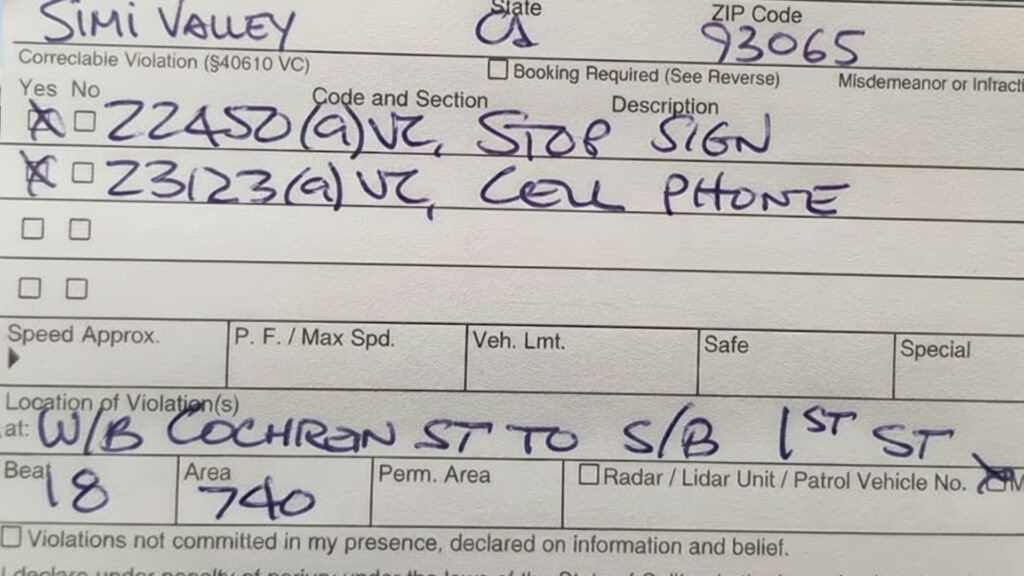 State ZIP Code
SIMI VALLEY CA 93065
Correctable Violation (§40610 VC) Booking Required (See Reverse) Misdemeanor or Infracti
Yes No Code and Section Description
22450(a)VC, STOP SIGN
23123(a)VC, CELL PHONE
Speed Approx. P. F. / Max Spd. Veh. Lmt. Safe Special
Location of Violation(s)
at: W/B COCHRAN ST TO S/B 1ST ST
Beat Area Perm. Area Radar / Lidar Unit / Patrol Vehicle No. M
18 740
Violations not committed in my presence, declared on information and belief.
I declare under penalty of perjury under the laws of the State of California